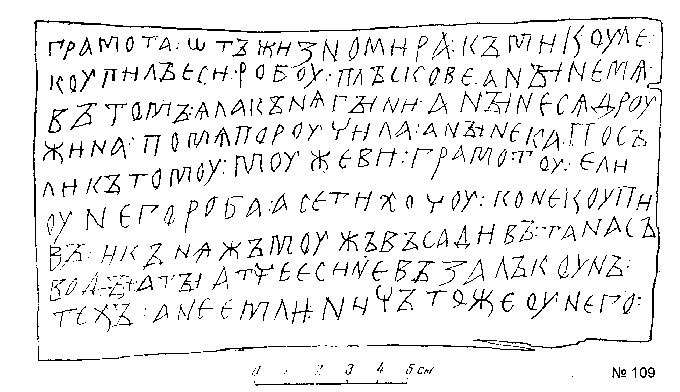 грамота : ѡтъ жизномира : къ микоуле :
коупилъ еси : робоу : плъскове : а нꙑне мѧ :
въ томъ : ѧла кънѧгꙑни : а нꙑне сѧ дроу
жина : по мѧ пороучила : а нꙑне ка : посъ
ли къ томоу : моужеви : грамотоу : ели
оу него роба : а се ти хочоу : коне коупи
въ : и кънѧжъ моужъ въсадивъ : та на съ
водꙑ : а тꙑ атче еси не възалъ коунъ :
техъ : а не емли : ничъто же оу него :
0 1 2 3 4 5 см
№ 109